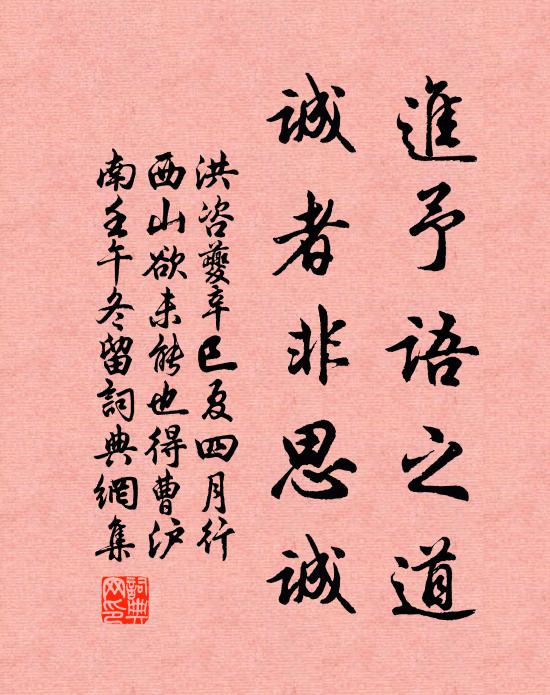 進予語之道
誠者非思誠
洪咨夔辛巳夏四月行
西山欲未能也得曹沪
南壬午冬留詞典網集
詞典网印